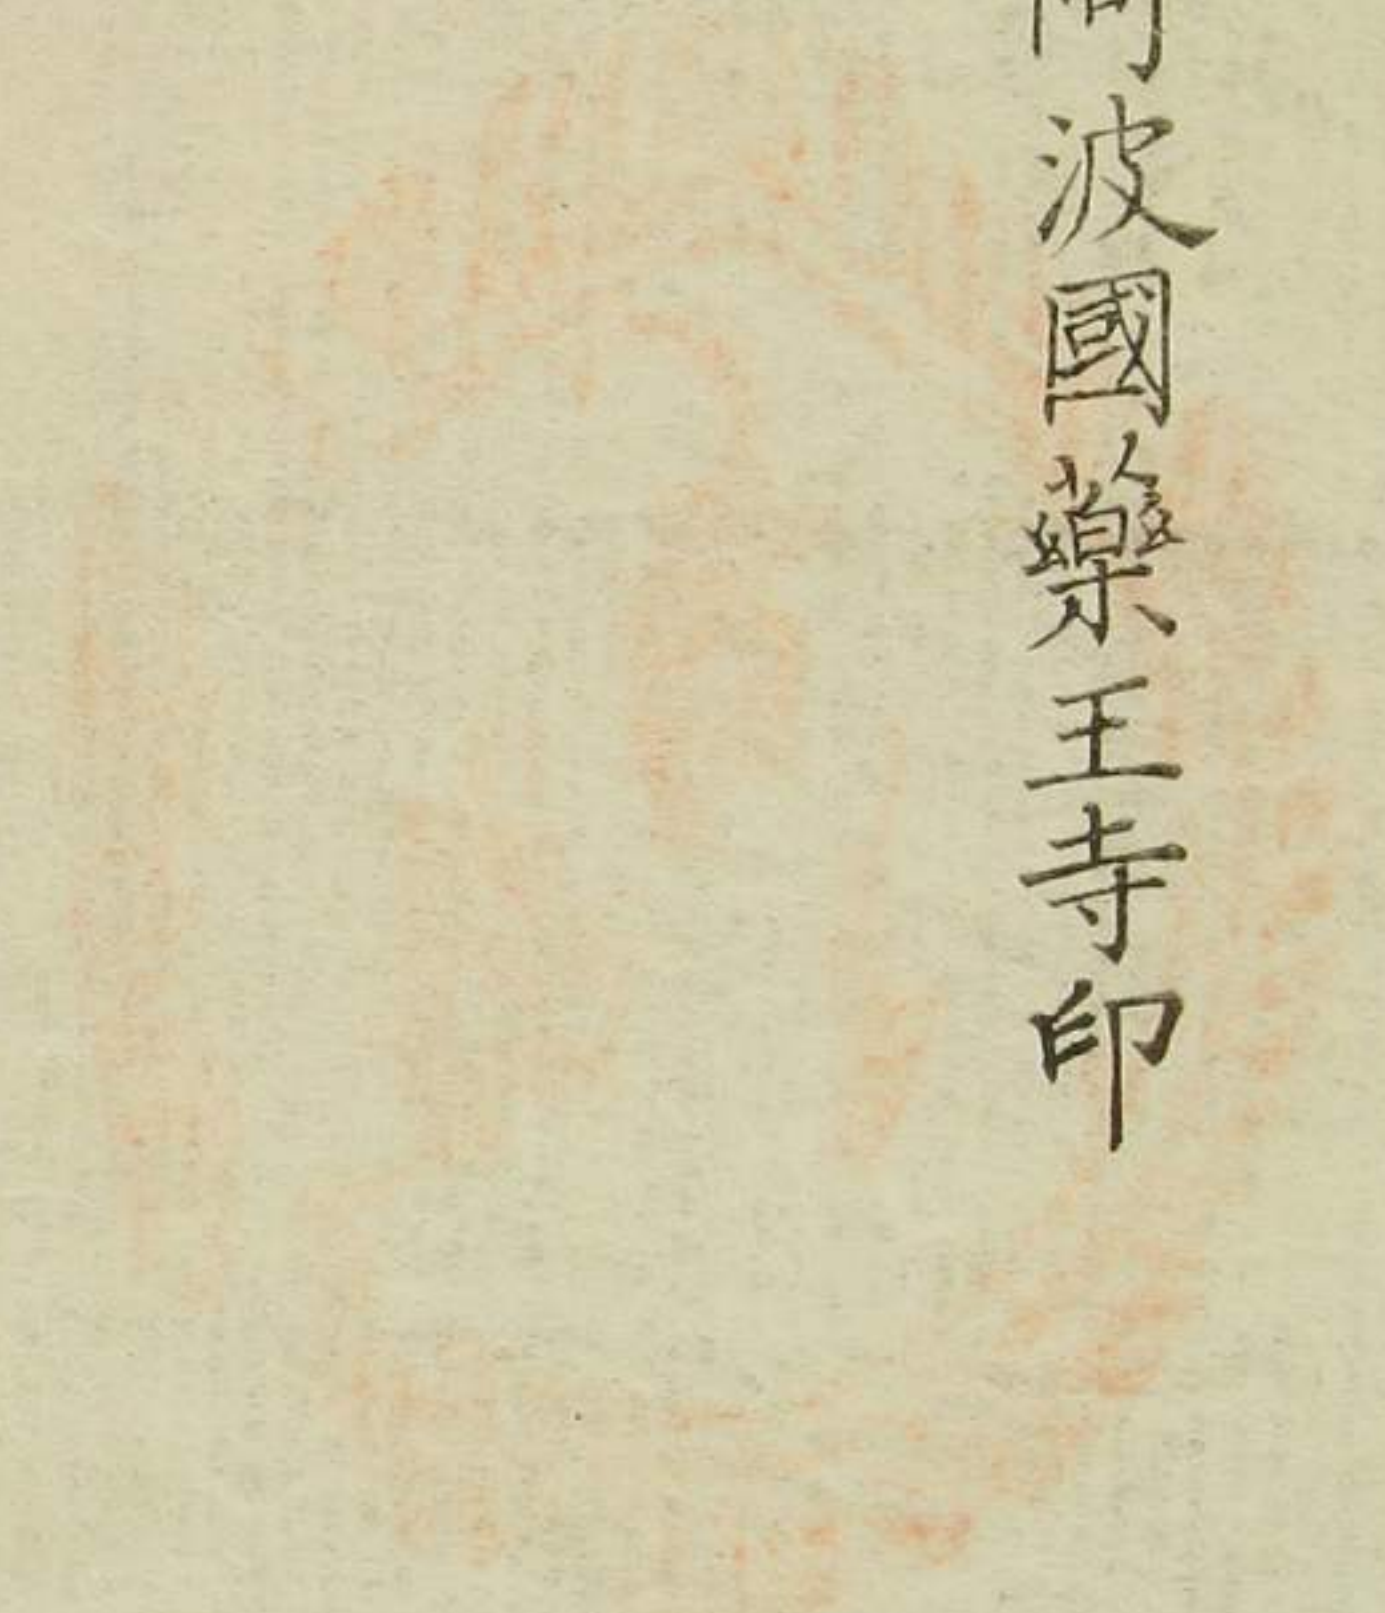 阿波國藥王寺印